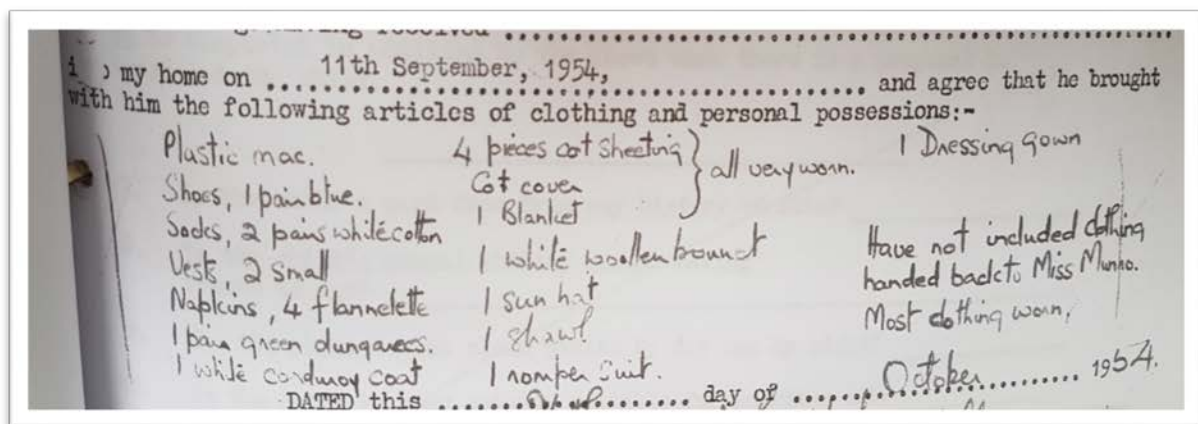 received ........................
my home on ......11th September, 1954,........................ and agree that he brought
with him the following articles of clothing and personal possessions:-
Plastic mac.
Shoes, 1 pair blue.
Socks, 2 pairs white cotton
Vests, 2 small
Napkins, 4 flannelette
1 pair green dungarees.
1 white corduroy coat
4 pieces cot sheeting
Cot cover
1 Blanket
all very worn.
1 white woollen bonnet
1 sun hat
1 shawl
1 romper suit.
1 Dressing gown
Have not included clothing
handed back to Miss Munro.
Most clothing worn,
DATED this ................ day of ......October............ 1954.